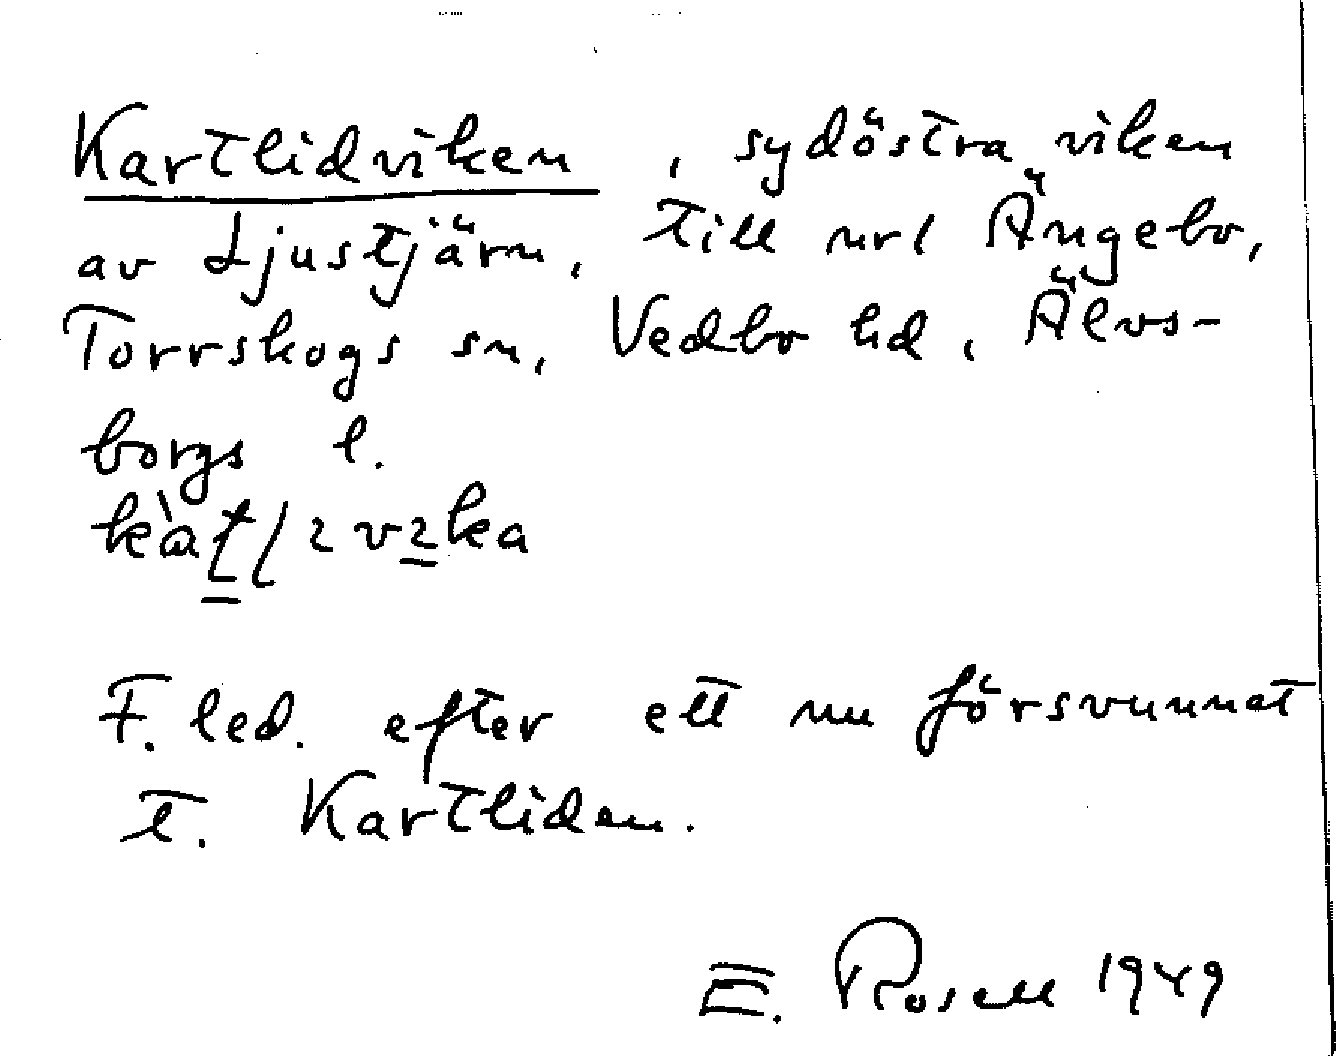 Kartlidviken, sydöstra viken
av Ljustjärn, till nrl Ängebo,
Torrskogs sn, Vedbo hd, Älvs-
borgs l.
F. led. efter ett nu försvunnet
t. Kartliden.
E. Rosell 1949